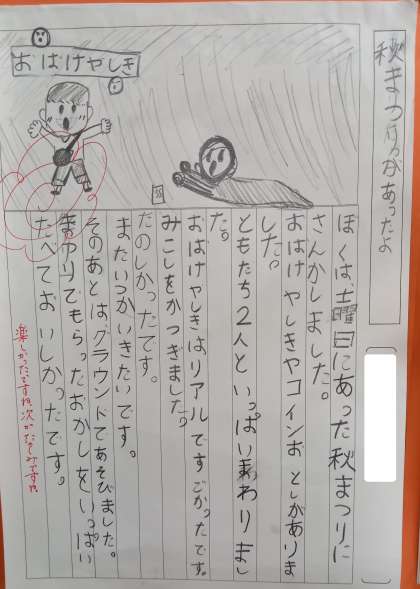 秋まつりがあったよ
おはけやしき
ぼくは、土曜日にあった秋まつりに
さんかしました。
おはけやしきやコインおとしがありま
した。
ともだち2人といっぱいまわりまし
た。
おはけやしきはリアルですごかったです。
みこしをかつぎました。
たのしかったです。
またいつかいきたいです。
そのあとはグラウンドであそびました。
まつりでもらったおかしをいっぱい
たべておいしかったです。
楽しかったですね。次がたのしみですね。